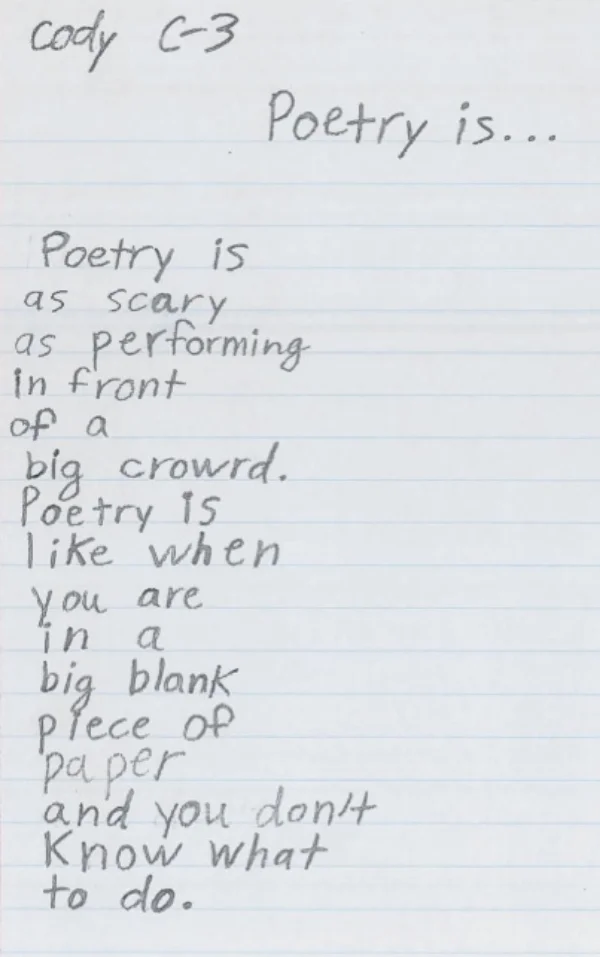 cody C-3
Poetry is...
Poetry is
as scary
as performing
in front
of a
big crowrd.
Poetry is
like when
you are
in a
big blank
piece of
paper
and you don't
Know what
to do.